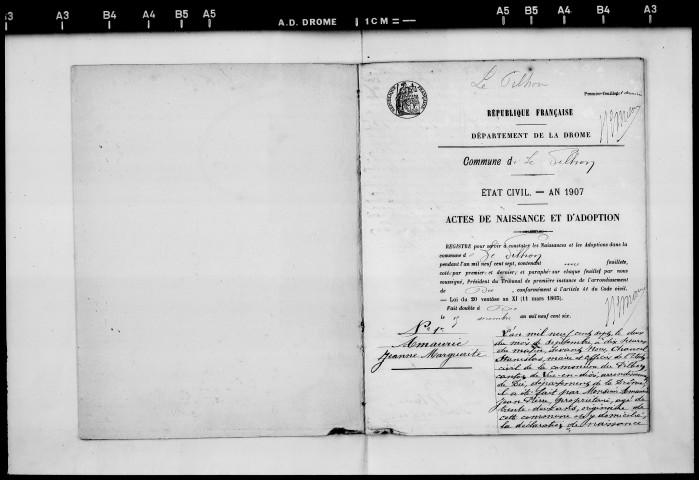 A3 A3 B4 A4 B5 A5 A.D. DROME 1 CM A5 B5 A4 B4 A3
Le Pilhon
RÉPUBLIQUE FRANÇAISE
RÉPUBLIQUE FRANÇAISE
DÉPARTEMENT DE LA DROME
Commune de Le Pilhon
ÉTAT CIVIL. — AN 1907
ACTES DE NAISSANCE ET D'ADOPTION
REGISTRE pour servir à constater les Naissances et les Adoptions dans la
commune d Le Pilhon
pendant l'an mil neuf cent sept, contenant feuillets,
coté par premier et dernier, et paraphé sur chaque feuillet par nous
soussigné, Président du Tribunal de première instance de l'arrondissement
de Die, conformément à l'article 41 du Code civil.
— Loi du 20 ventôse an XI (11 mars 1803).
Fait double à Die
le an mil neuf cent six.
N° 1er
Amauric
Jeanne Marguerite
L'an mil neuf cent sept le deux
du mois de septembre, à dix heures
du matin, devant Nous,
Stanislas, maire et officier de l'État
civil de la commune du Pilhon,
canton de Luc-en-Diois, arrondissement
de Die, département de la Drôme,
a été fait par Monsieur Amauric
Jean Pierre, propriétaire, âgé de
trente-deux ans, originaire de
cette commune et y domicilié,
la déclaration de naissance